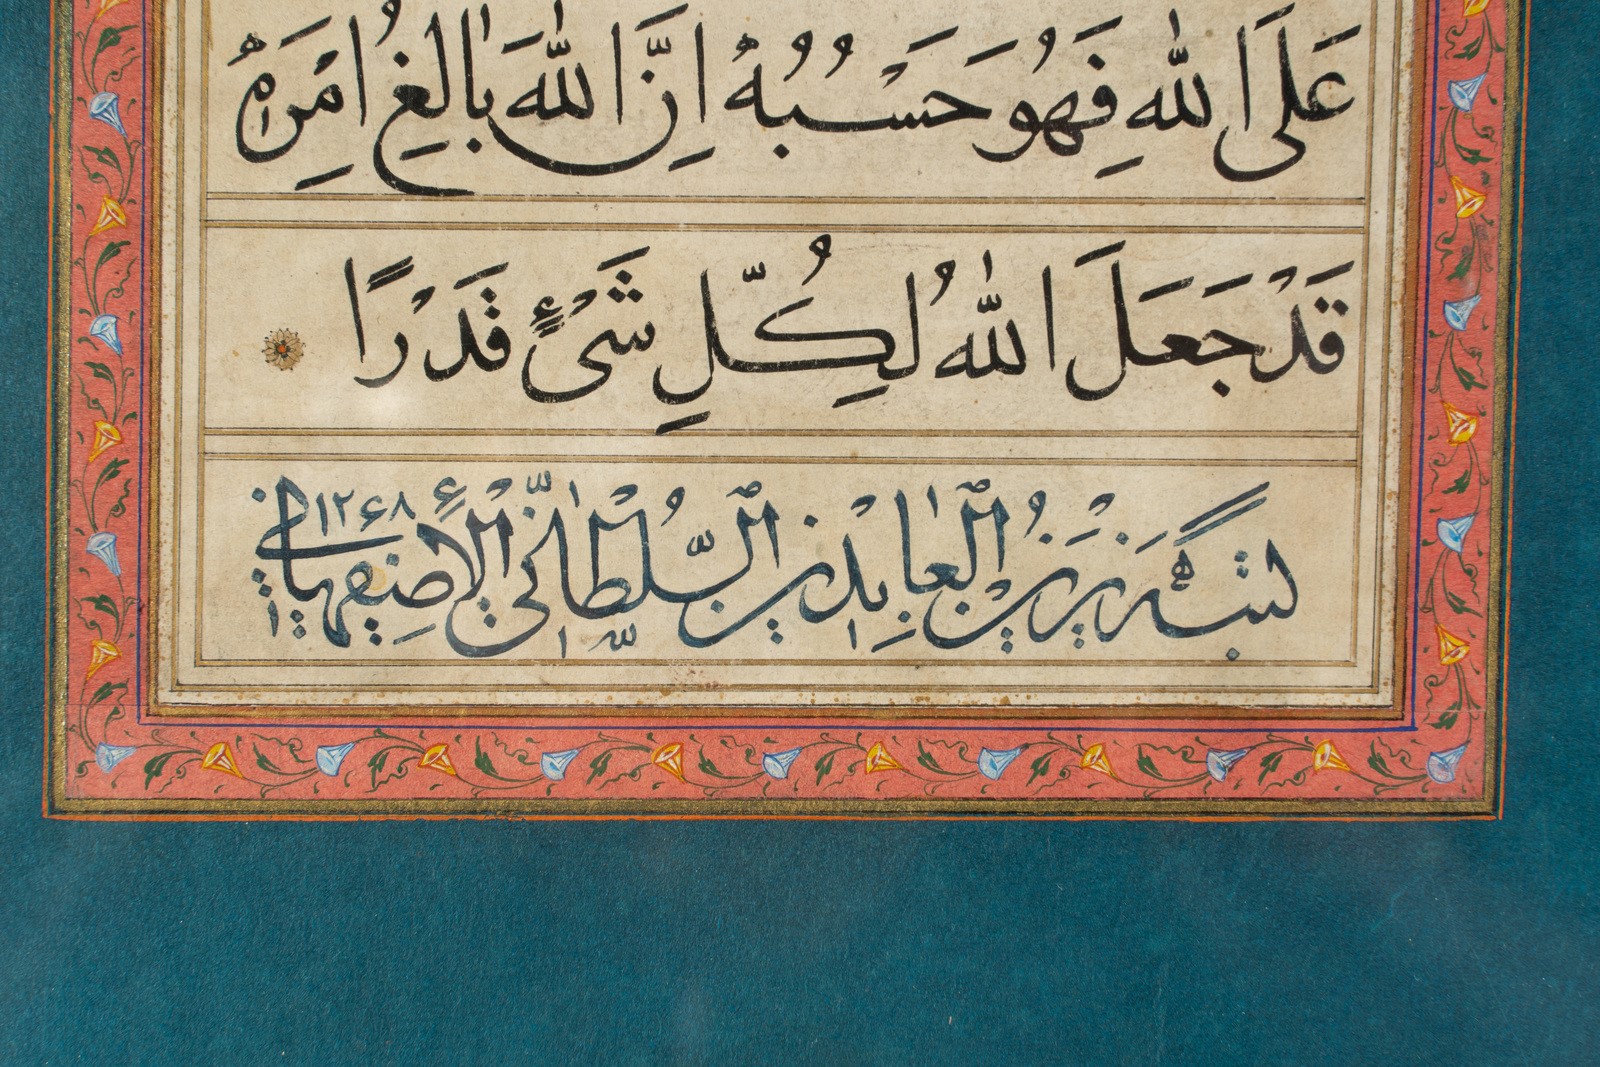 عَلَى اللّٰهِ فَهُوَ حَسْبُهُ اِنَّ اللّٰهَ بَالِغُ اَمْرِهِ
قَدْ جَعَلَ اللّٰهُ لِكُلِّ شَیْءٍ قَدْرًا
زَيْنُ الْعَابِدِينَ السُّلْطَانِيُّ الْأِصْفِهَانِي ۱۲۶۸